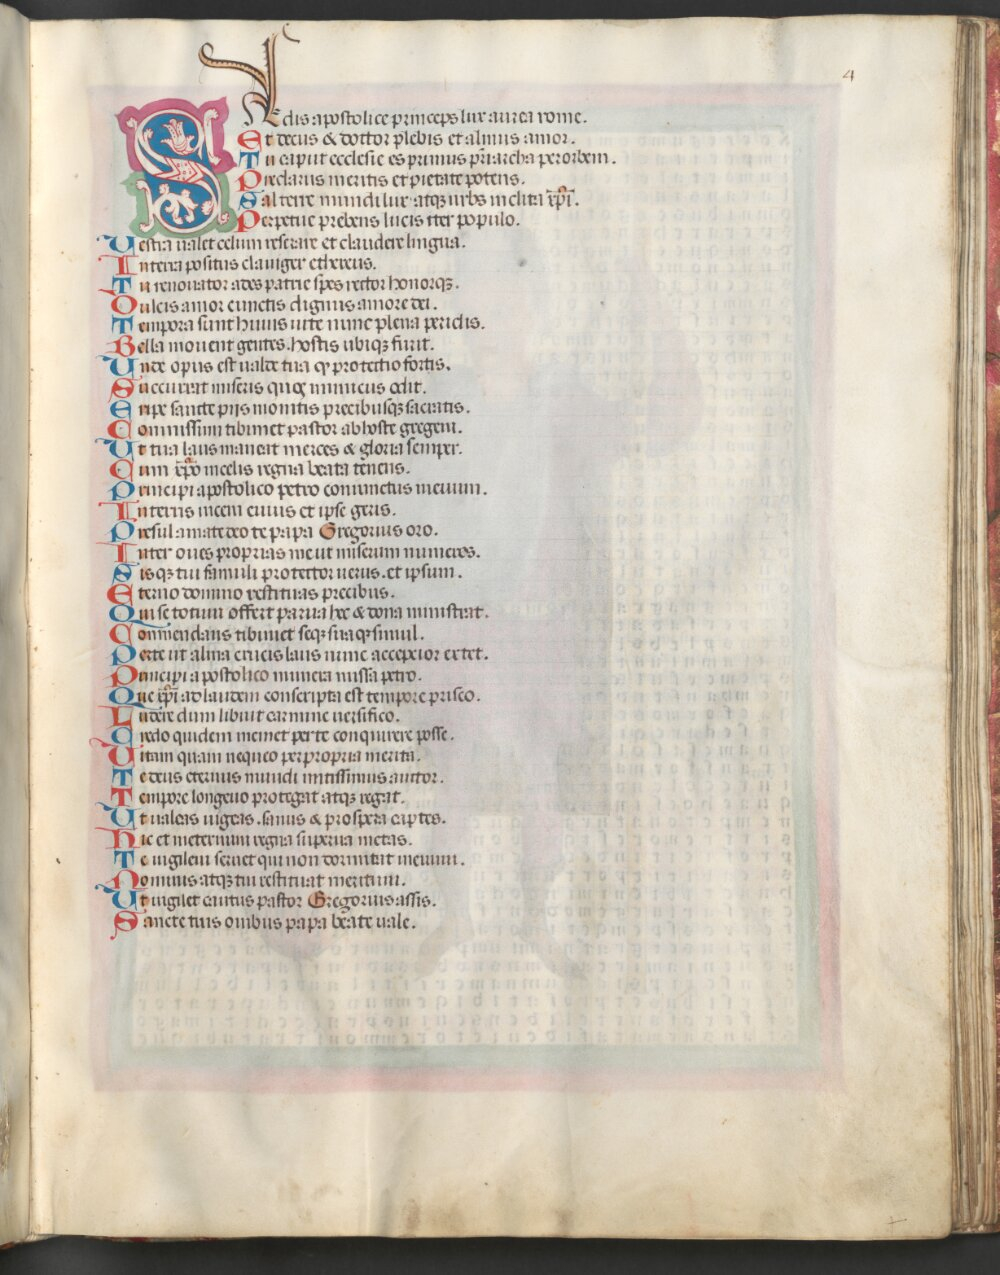 4
SEdis apostolice princeps lux aurea rome.
Et decus & doctor plebis et almus amor.
Tu caput ecclesie es primus pr̄iarcha per orbem.
Preclarus meritis et pietate potens.
Sal terre mundi lux atqꝫ urbs inclita xp̄i.
Perpetue prebens lucis iter populo.
Vestra ualet celum reserare et claudere lingua.
In terra positus clauiger ethereus.
Tu renouator ades patrie spes rector honorqꝫ.
Dulcis amor cunctis dignus amore dei.
Tempora sunt huius uite nunc plena periclis.
Bella mouent gentes. hostis ubiqꝫ furit.
Unde opus est ualde tua qꝫ protectio fortis.
Succurrat miseris quos inimicus odit.
Eripe sancte piis monitis precibusqꝫ sacratis.
Commissum tibimet pastor ab hoste gregem.
Ut tua laus maneat merces & gloria semper.
Cum xp̄o in celis regna beata tenens.
Principi apostolico petro coniunctus in euum.
In terris uicem cuius et ipse geris.
Presul amate deo te papa Gregorius oro.
Inter oues proprias me ut miserum numeres.
Sisqꝫ tui famuli protector uerus. et ipsum.
Eterno domino restituas precibus.
Qui se totum offert parua hec & dona ministrat.
Commendans tibimet seqꝫ suaqꝫ simul.
Per te ut alma crucis laus nunc acceptior extet.
Principi apostolico munera missa petro.
Que xp̄i ad laudem conscripta est tempore prisco.
Ludere dum libuit carmine uersifico.
Credo quidem memet per te conquirere posse.
Uitam quam nequeo per propria merita.
Te deus eternus mundi mitissimus auctor.
Tempore longeuo protegat atqꝫ regat.
Ut ualeas uigeas. sanus & prospera captes.
Hic et in eternum regna superna metas.
Te uigilem seruet qui non dormitat in euum.
Dominus atqꝫ tui restituat meritum.
Ut uigilet cautus pastor Gregorius assis.
Sancte tuis ouibus papa beate uale.